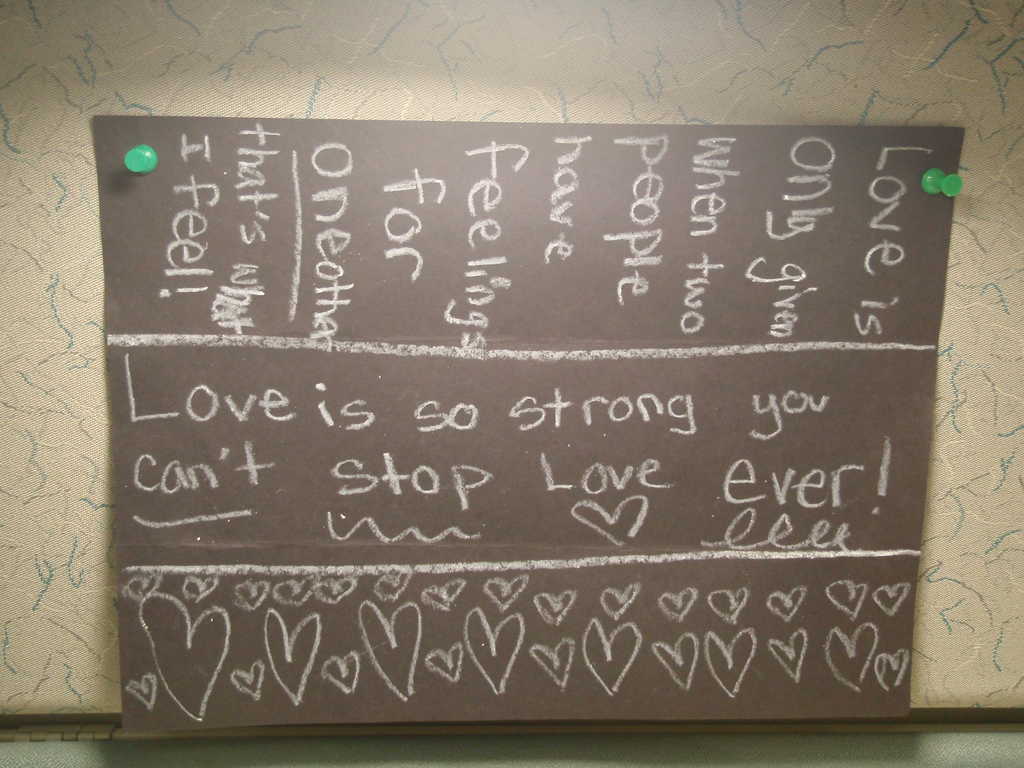 Love is
Only givin
When two
people
have
feelings
for
Oneother
that's what
I feel!
Love is so strong you
can't stop Love ever!